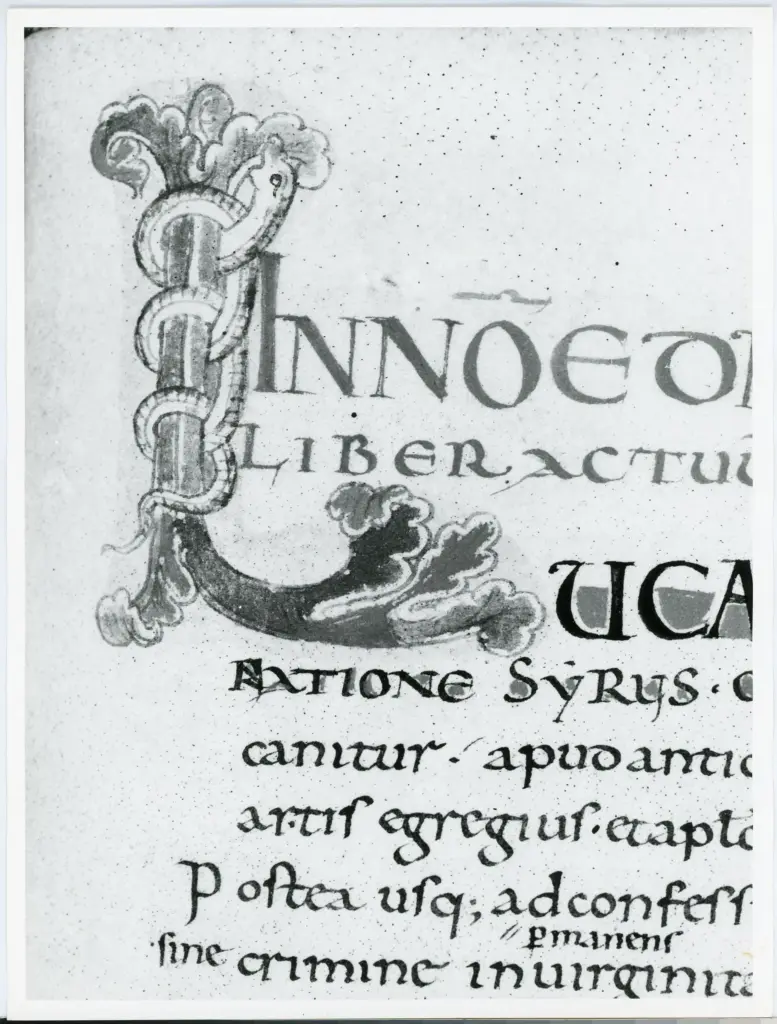 INNOE DI
LIBER ACTUU
LUCA
NATIONE SYRUS · C
canitur · apud antio
artis egregius · et aplo
Postea usq; ad confess
pmanens
sine crimine in uirginita